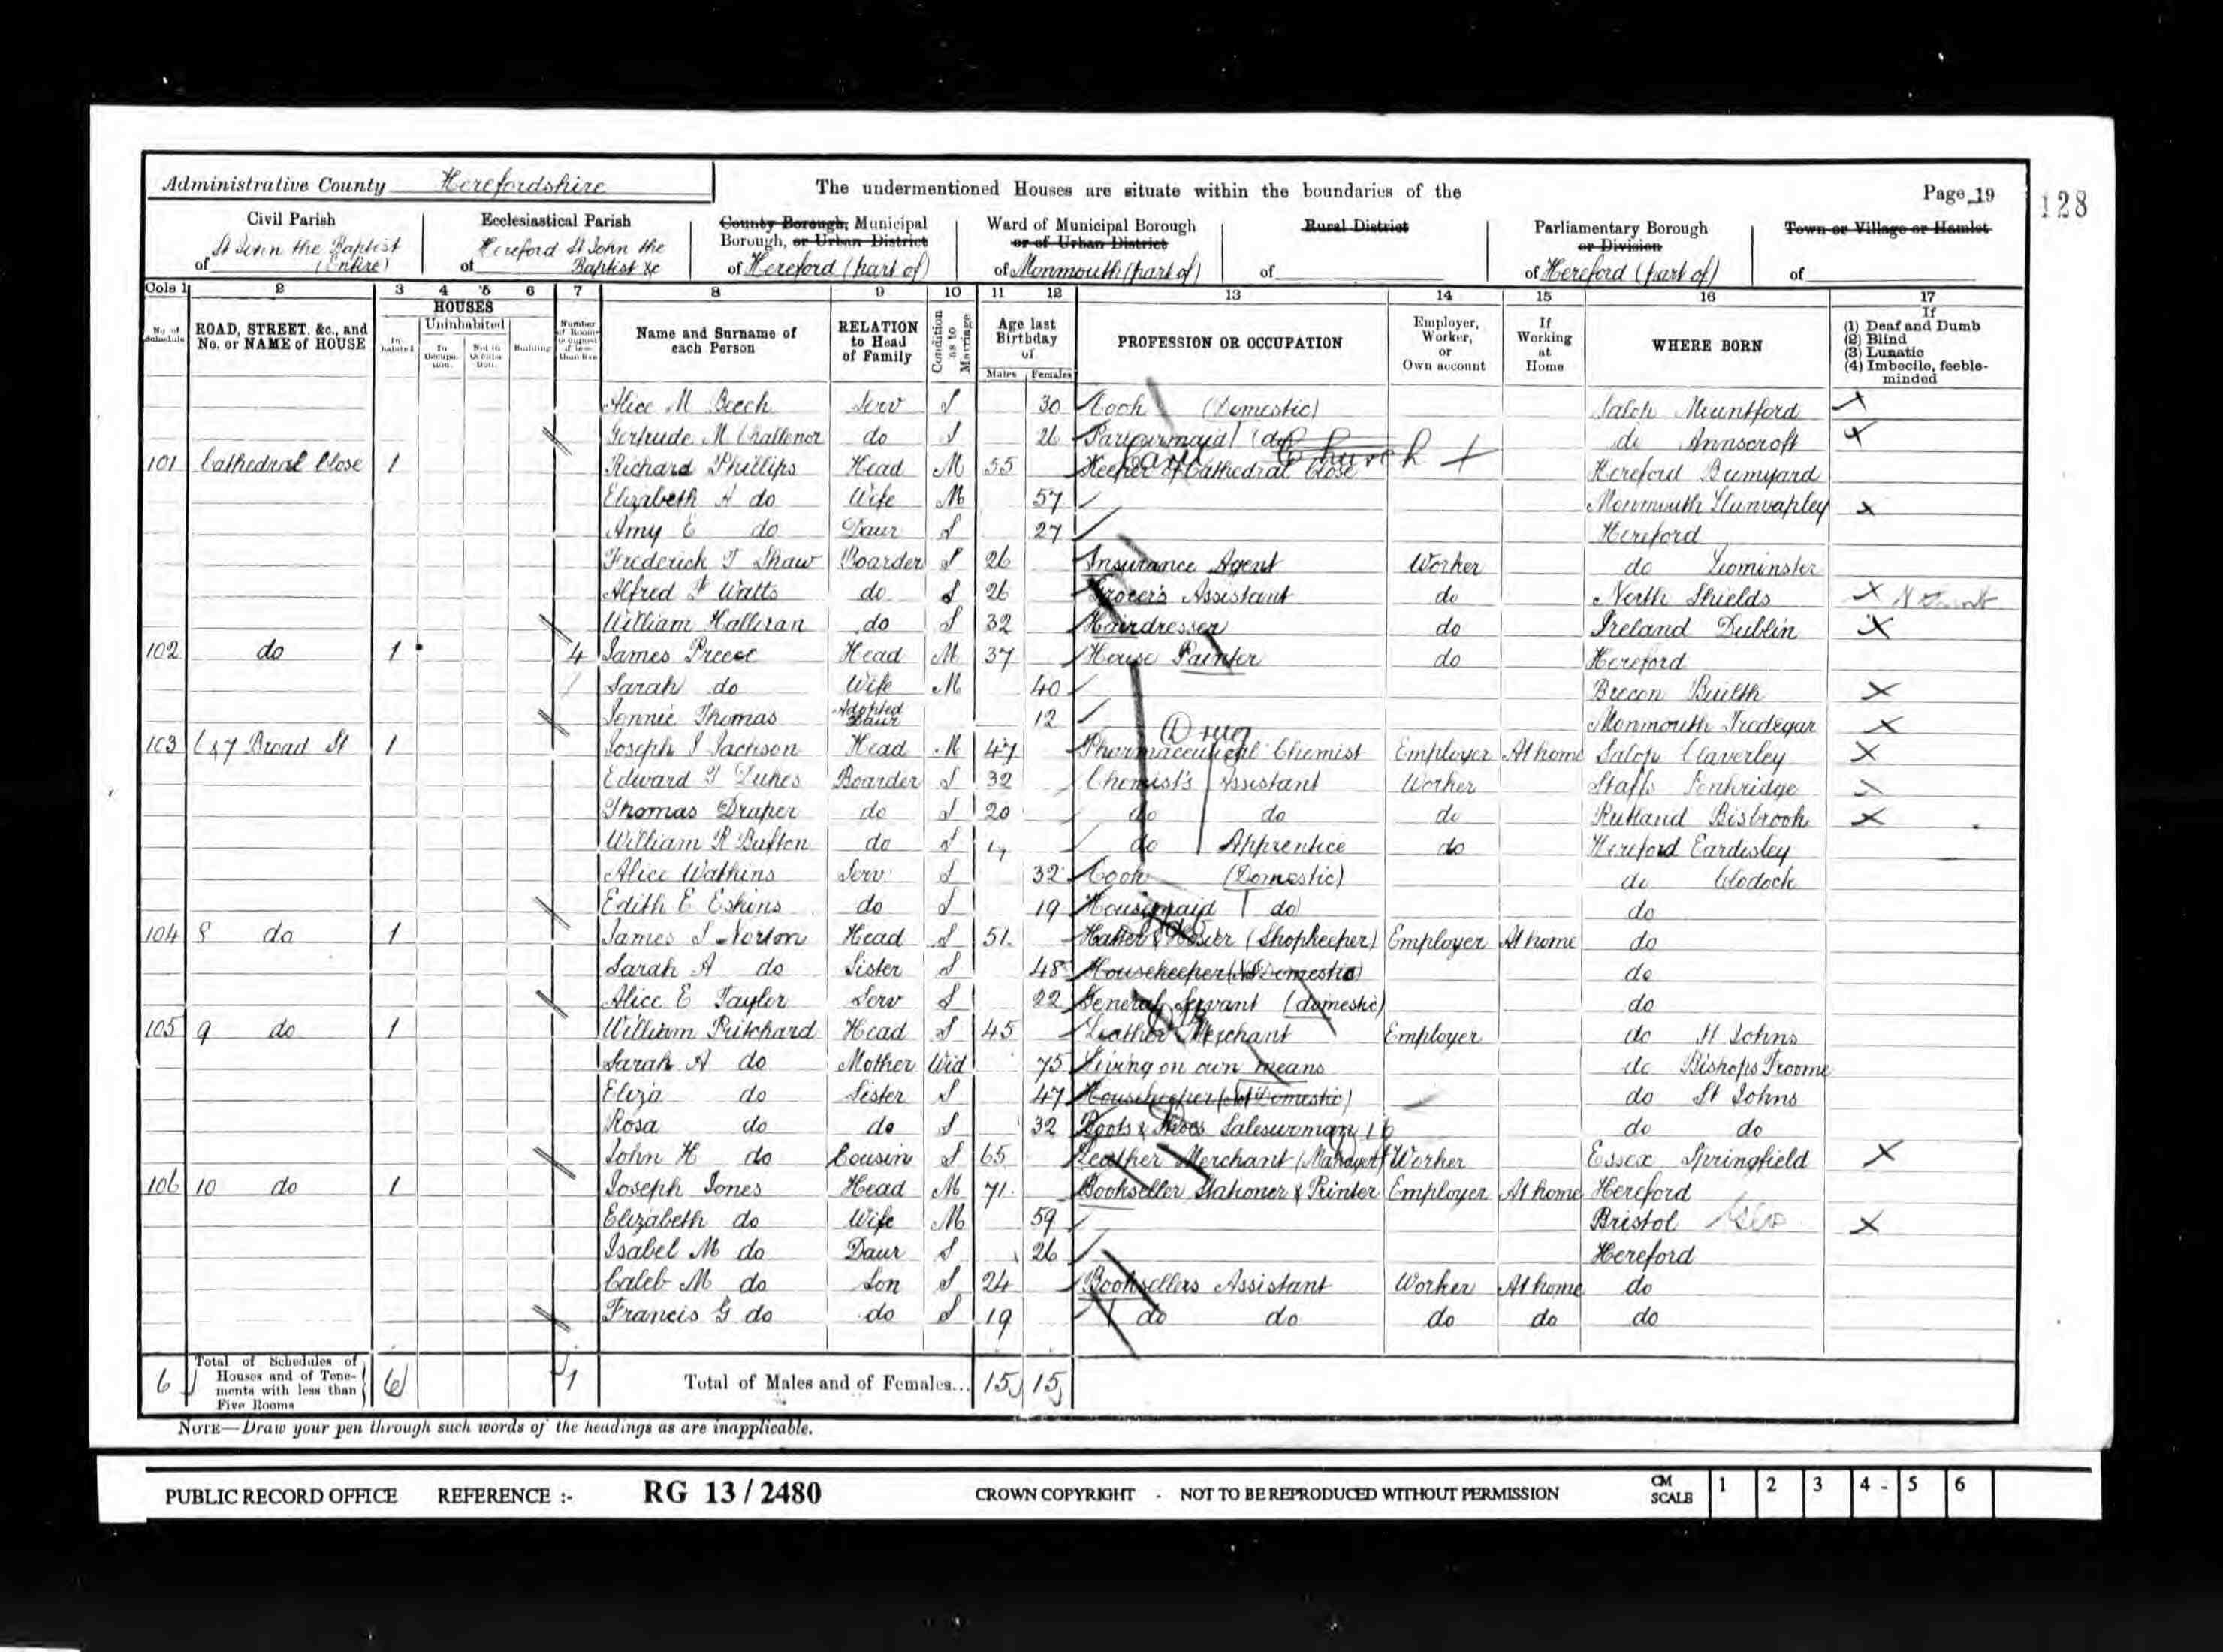 128
Administrative County Herefordshire The undermentioned Houses are situate within the boundaries of the Page 19
Civil Parish Ecclesiastical Parish County Borough, Municipal Ward of Municipal Borough Rural District Parliamentary Borough Town or Village or Hamlet
St John the Baptist Hereford St John the Borough, or Urban District or of Urban District or Division
of (Entire) of Baptist &c of Hereford (part of) of Monmouth (part of) of of Hereford (part of) of
Cols 1 2 3 4 5 6 7 8 9 10 11 12 13 14 15 16 17
No. of Schedule ROAD, STREET, &c., and No. or NAME of HOUSE HOUSES Inhabited Uninhabited In Occupation. Not in Occupation. Building Number of Rooms occupied if less than five Name and Surname of each Person RELATION to Head of Family Condition as to Marriage Age last Birthday of Males Females PROFESSION OR OCCUPATION Employer, Worker, or Own account If Working at Home WHERE BORN If (1) Deaf and Dumb (2) Blind (3) Lunatic (4) Imbecile, feeble-minded
Alice M Beech Serv S 30 Cook (Domestic) Salop Muntford
Gertrude M Challenor do S 26 Parlourmaid (do) do Annscroft
101 Cathedral Close 1 Richard Phillips Head M 55 Keeper of Cathedral Close Church Hereford Bromyard
Elizabeth A do Wife M 57 Monmouth Llanvapley
Amy E do Daur S 27 Hereford
Frederick T Shaw Boarder S 26 Insurance Agent Worker do Leominster
Alfred F Watts do S 26 Grocer's Assistant do North Shields
William Halliran do S 32 Hairdresser do Ireland Dublin
102 do 1 4 James Preece Head M 37 House Painter do Hereford
Sarah do Wife M 40 Brecon Builth
Jennie Thomas Adopted Daur 12 Monmouth Tredegar
103 6 & 7 Broad St 1 Joseph J Jackson Head M 47 Pharmaceutical Chemist Drug Employer At home Salop Claverley
Edward T Dukes Boarder S 32 Chemist's Assistant Worker Staffs Penkridge
Thomas Draper do S 20 do do do Rutland Bisbrook
William R Bufton do S 17 do Apprentice do Hereford Eardisley
Alice Watkins Serv S 32 Cook (Domestic) do Clodock
Edith E Eskins do S 19 Housemaid do do
104 8 do 1 James S Norton Head S 51 Hatter & Hosier (Shopkeeper) Employer At home do
Sarah A do Sister S 48 Housekeeper (Not Domestic) do
Alice E Taylor Serv S 22 General Servant (domestic) do
105 9 do 1 William Pritchard Head S 45 Leather Merchant Employer do St Johns
Sarah A do Mother Wid 75 Living on own means do Bishops Froome
Eliza do Sister S 47 Housekeeper (Not Domestic) do St Johns
Rosa do do S 32 Boots & Shoes Saleswoman do do
John H do Cousin S 65 Leather Merchant (Manager) Worker Essex Springfield
106 10 do 1 Joseph Jones Head M 71 Bookseller Stationer & Printer Employer At home Hereford
Elizabeth do Wife M 59 Bristol Glos
Isabel M do Daur S 26 Hereford
Caleb M do Son S 24 Booksellers Assistant Worker At home do
Francis G do do S 19 do do do do do
6 Total of Schedules of Houses and of Tenements with less than Five Rooms 6 1 Total of Males and of Females... 15 15
NOTE—Draw your pen through such words of the headings as are inapplicable.
PUBLIC RECORD OFFICE REFERENCE :- RG 13 / 2480 CROWN COPYRIGHT - NOT TO BE REPRODUCED WITHOUT PERMISSION CM SCALE 1 2 3 4 5 6